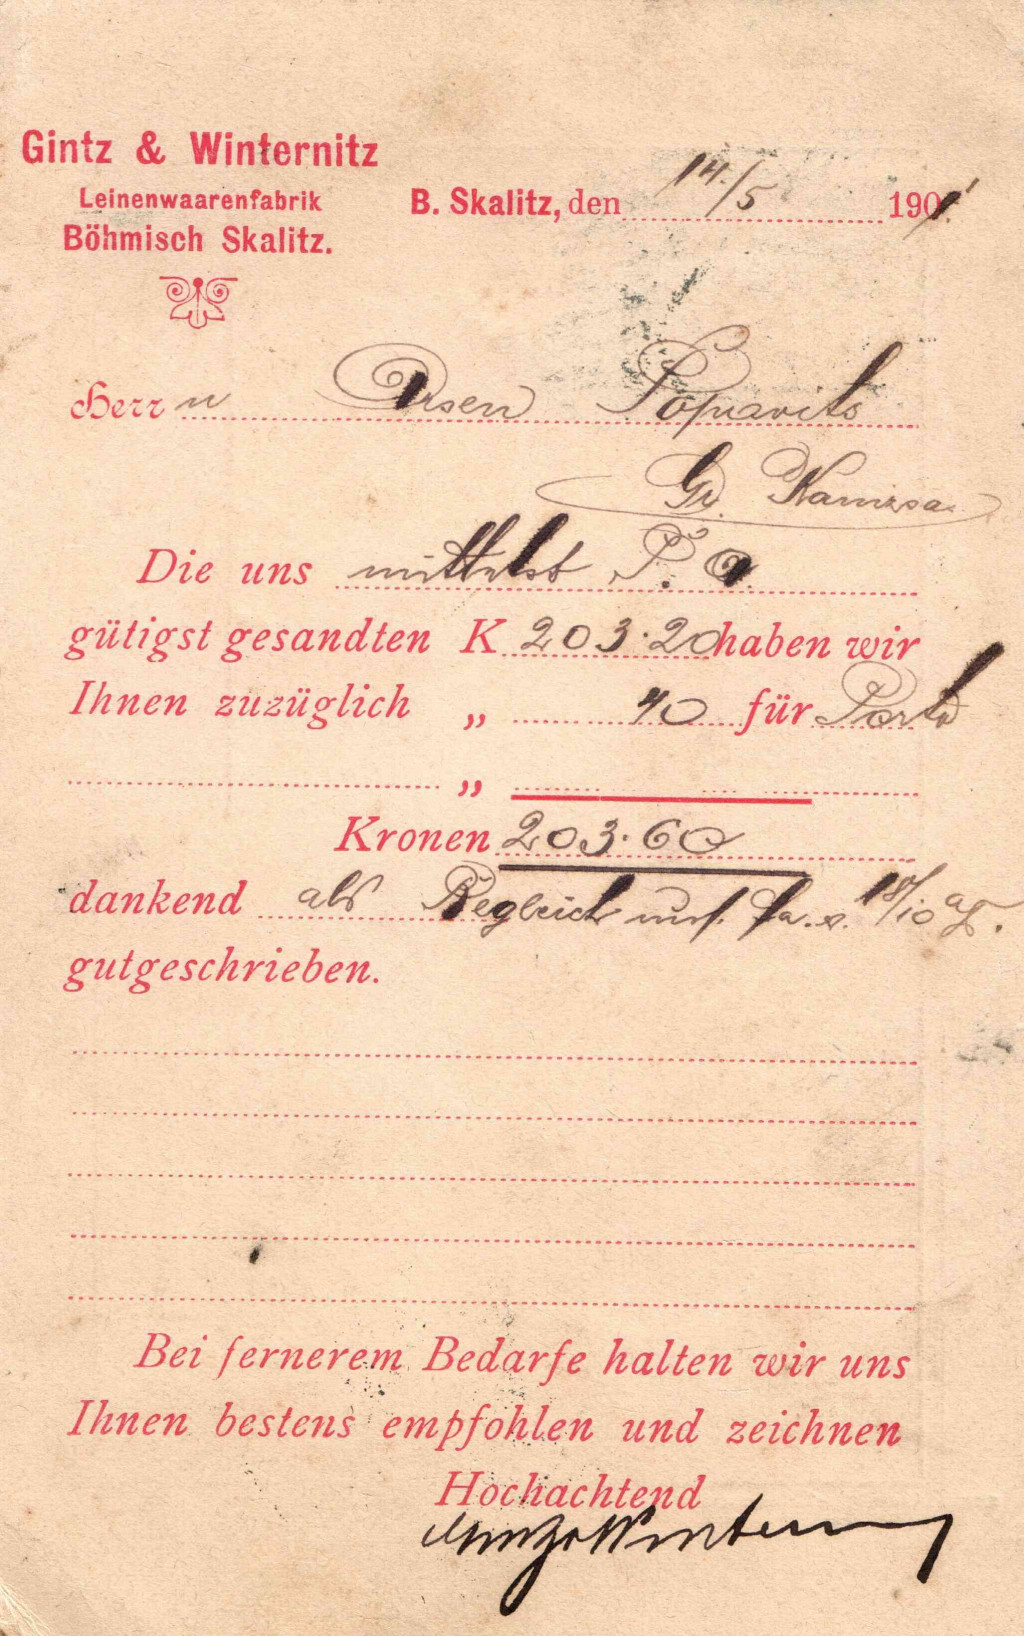 Gintz & Winternitz
Leinenwaarenfabrik
Böhmisch Skalitz.
B. Skalitz, den 14./5 1901.
Herrn Arsen Popovits
Gr. Kanizsa
Die uns mittelst P. A.
gütigst gesandten K 203·20 haben wir
Ihnen zuzüglich „ 40 für Porto
„
Kronen 203·60
dankend als Begleich uns. Fa. v. 18/10
gutgeschrieben.
Bei fernerem Bedarfe halten wir uns
Ihnen bestens empfohlen und zeichnen
Hochachtend
Gintz & Winternitz